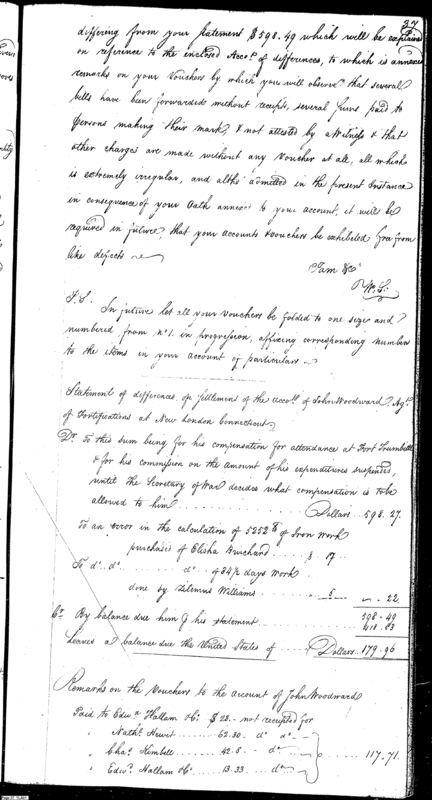 37
differing from your Statement $598.49 which will be explained
on reference to the enclosed Acco.t of differences, to which is annexed
remarks on your Vouchers by which you will observe that several
bills have been forwarded without receipts, several sums paid to
persons making their mark, & not attested by a Witness & that
other charges are made without any Voucher at all, all which
is extremely irregular, and altho' admitted in the present Instance
in consequence of your Oath annexed to your account, it will be
required in future, that your accounts & vouchers be exhibited free from
like defects
I am &c
W. S.
P.S. In future let all your vouchers be folded to one size and
numbered from no. 1. in progression, affixing corresponding numbers
to the items in your account of particulars
Statement of differences, on settlement of the acco.ts of John Woodward, Ag.t
of Fortifications at New London Connecticut
Dr. To this sum being for his compensation for attendance at Fort Trumbull
& for his commission on the amount of his expenditures suspended,
until the Secretary of War decides what compensation is to be
allowed to him Dollars 598.27.
To an error in the calculation of 5252 lb of Iron work
purchased of Elisha 17
To d.o d.o d.o of 34½ days work
done by Williams 5 22
598.49
Cr. By balance due him his statement 418.53
Leaves a balance due the United States of Dollars 179.96
Remarks on the Vouchers to the account of John Woodward
Paid to Edw.d Hallam &c. $23.- not receipted for
" Nath.l Hewit 62.30 d.o d.o
" Cha.s Kimbell 42.8 d.o 117.71.
" Edw.d Hallam &c. 13.33 d.o